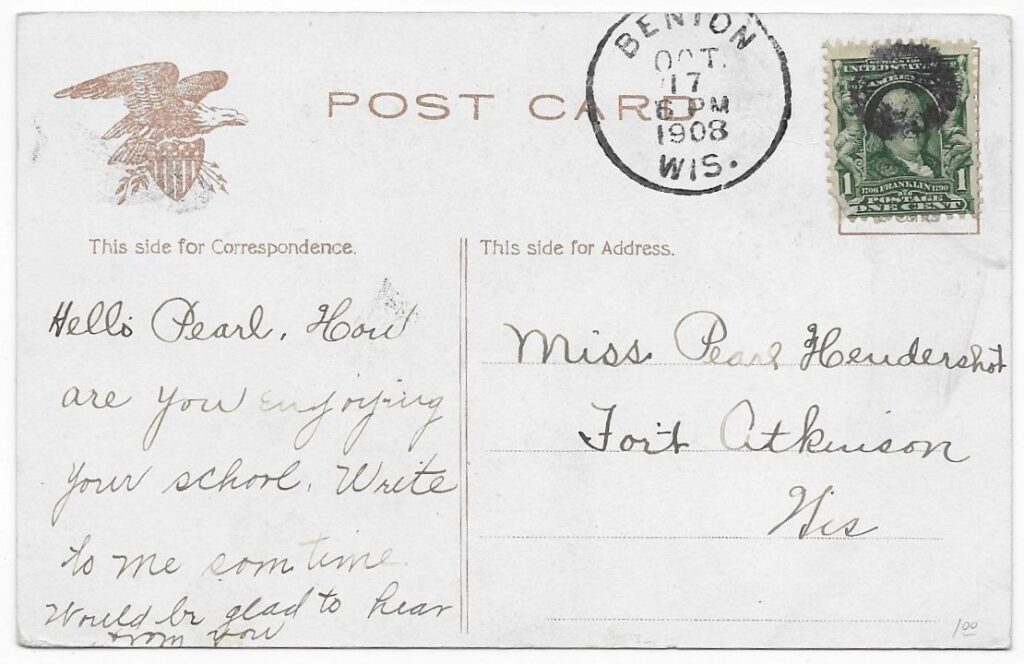 POST CARD
BENTON
OCT.
17
6 PM
1908
WIS.
UNITED STATES
1 1706 FRANKLIN 1790 1
POSTAGE
ONE CENT
This side for Correspondence.
This side for Address.
Hello Pearl, How
are you enjoying
your school. Write
to me som time
Would be glad to hear
from you
Miss. Pearl Hendershot
Fort Atkinson
Wis
1.00